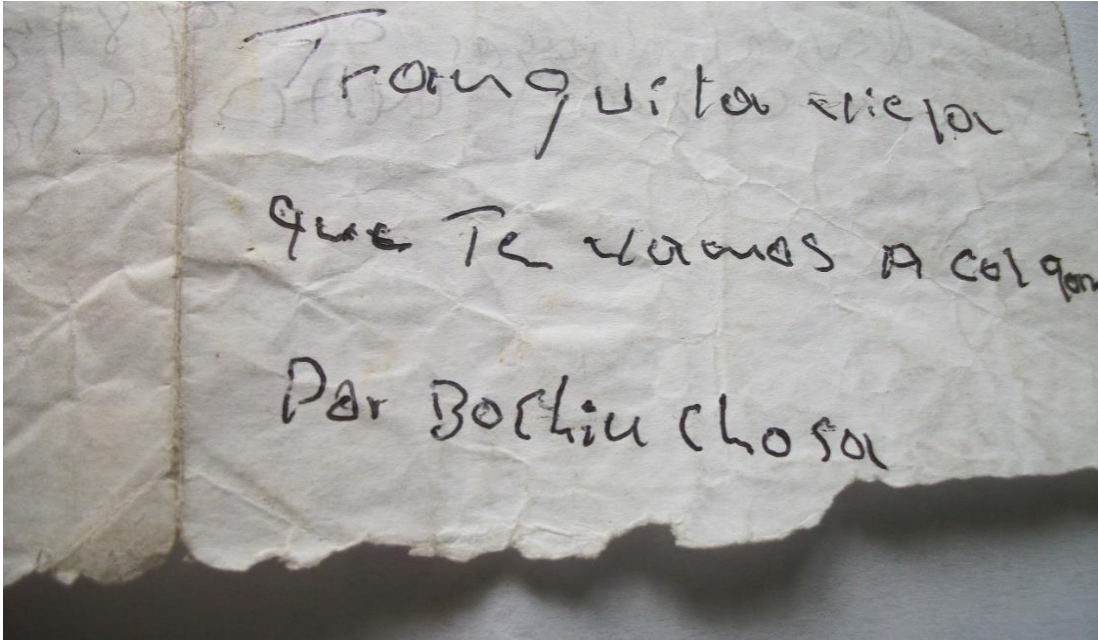 Tranquila vieja
que Te vamos A colgar
Por Bochinchosa